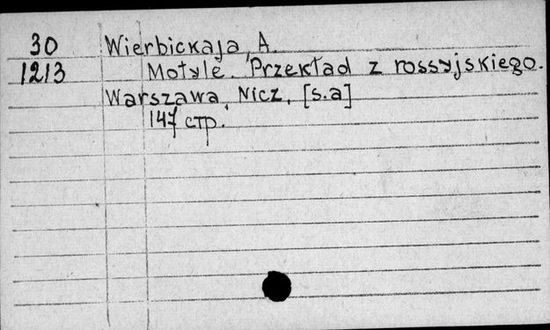 30 Wierbickaja, A.
1213 Motyle. Przekład z rossyjskiego.
Warszawa, Nicz, [s.a]
147 стр.